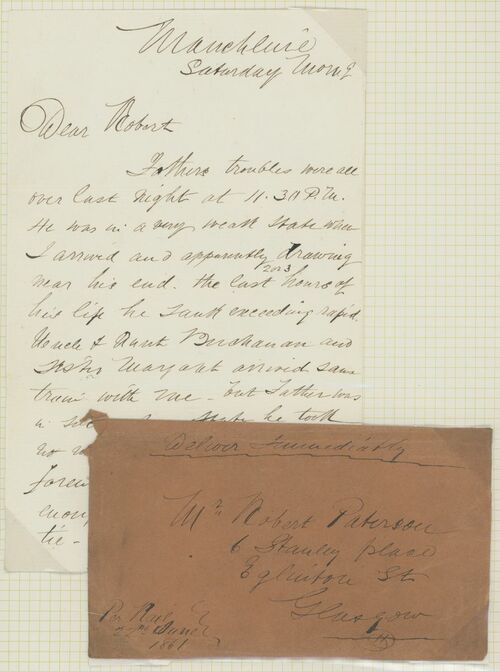 Mauchline
Saturday Morng
Dear Robert
Fathers troubles were all
over last night at 11.30 P.M.
He was in a very weak state when
I arrived and apparently drawing
2 or 3
near his end. the last hours of
his life he sank exceeding rapid.
Uncle & Aunt Buchanan and
Sister Margaret arrived same
train with me - but Father was
in state he took
no
enou
tie -
Deliver Immediately
Mr. Robert Paterson
6 Stanley place
Eglinton St
Glasgow
Per Rail
22nd June
1861